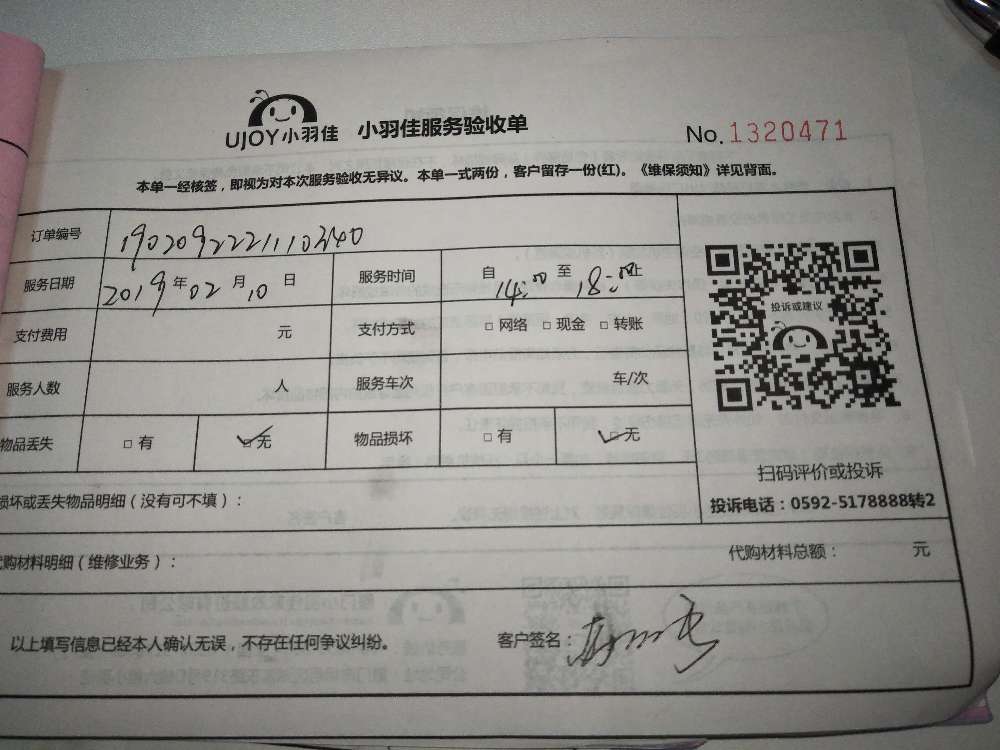 UJOY小羽佳 小羽佳服务验收单 No.1320471
本单一经核签，即视为对本次服务验收无异议。本单一式两份，客户留存一份(红)。《维保须知》详见背面。
订单编号 1902092221110240
服务日期 2019年02月10日 服务时间 自14:00至18:00止
支付费用 元 支付方式 □网络 □现金 □转账
服务人数 人 服务车次 车/次
物品丢失 □有 ☑无 物品损坏 □有 ☑无
投诉或建议
扫码评价或投诉
投诉电话：0592-5178888转2
损坏或丢失物品明细（没有可不填）：
代购材料明细（维修业务）： 代购材料总额： 元
以上填写信息已经本人确认无误，不存在任何争议纠纷。 客户签名：